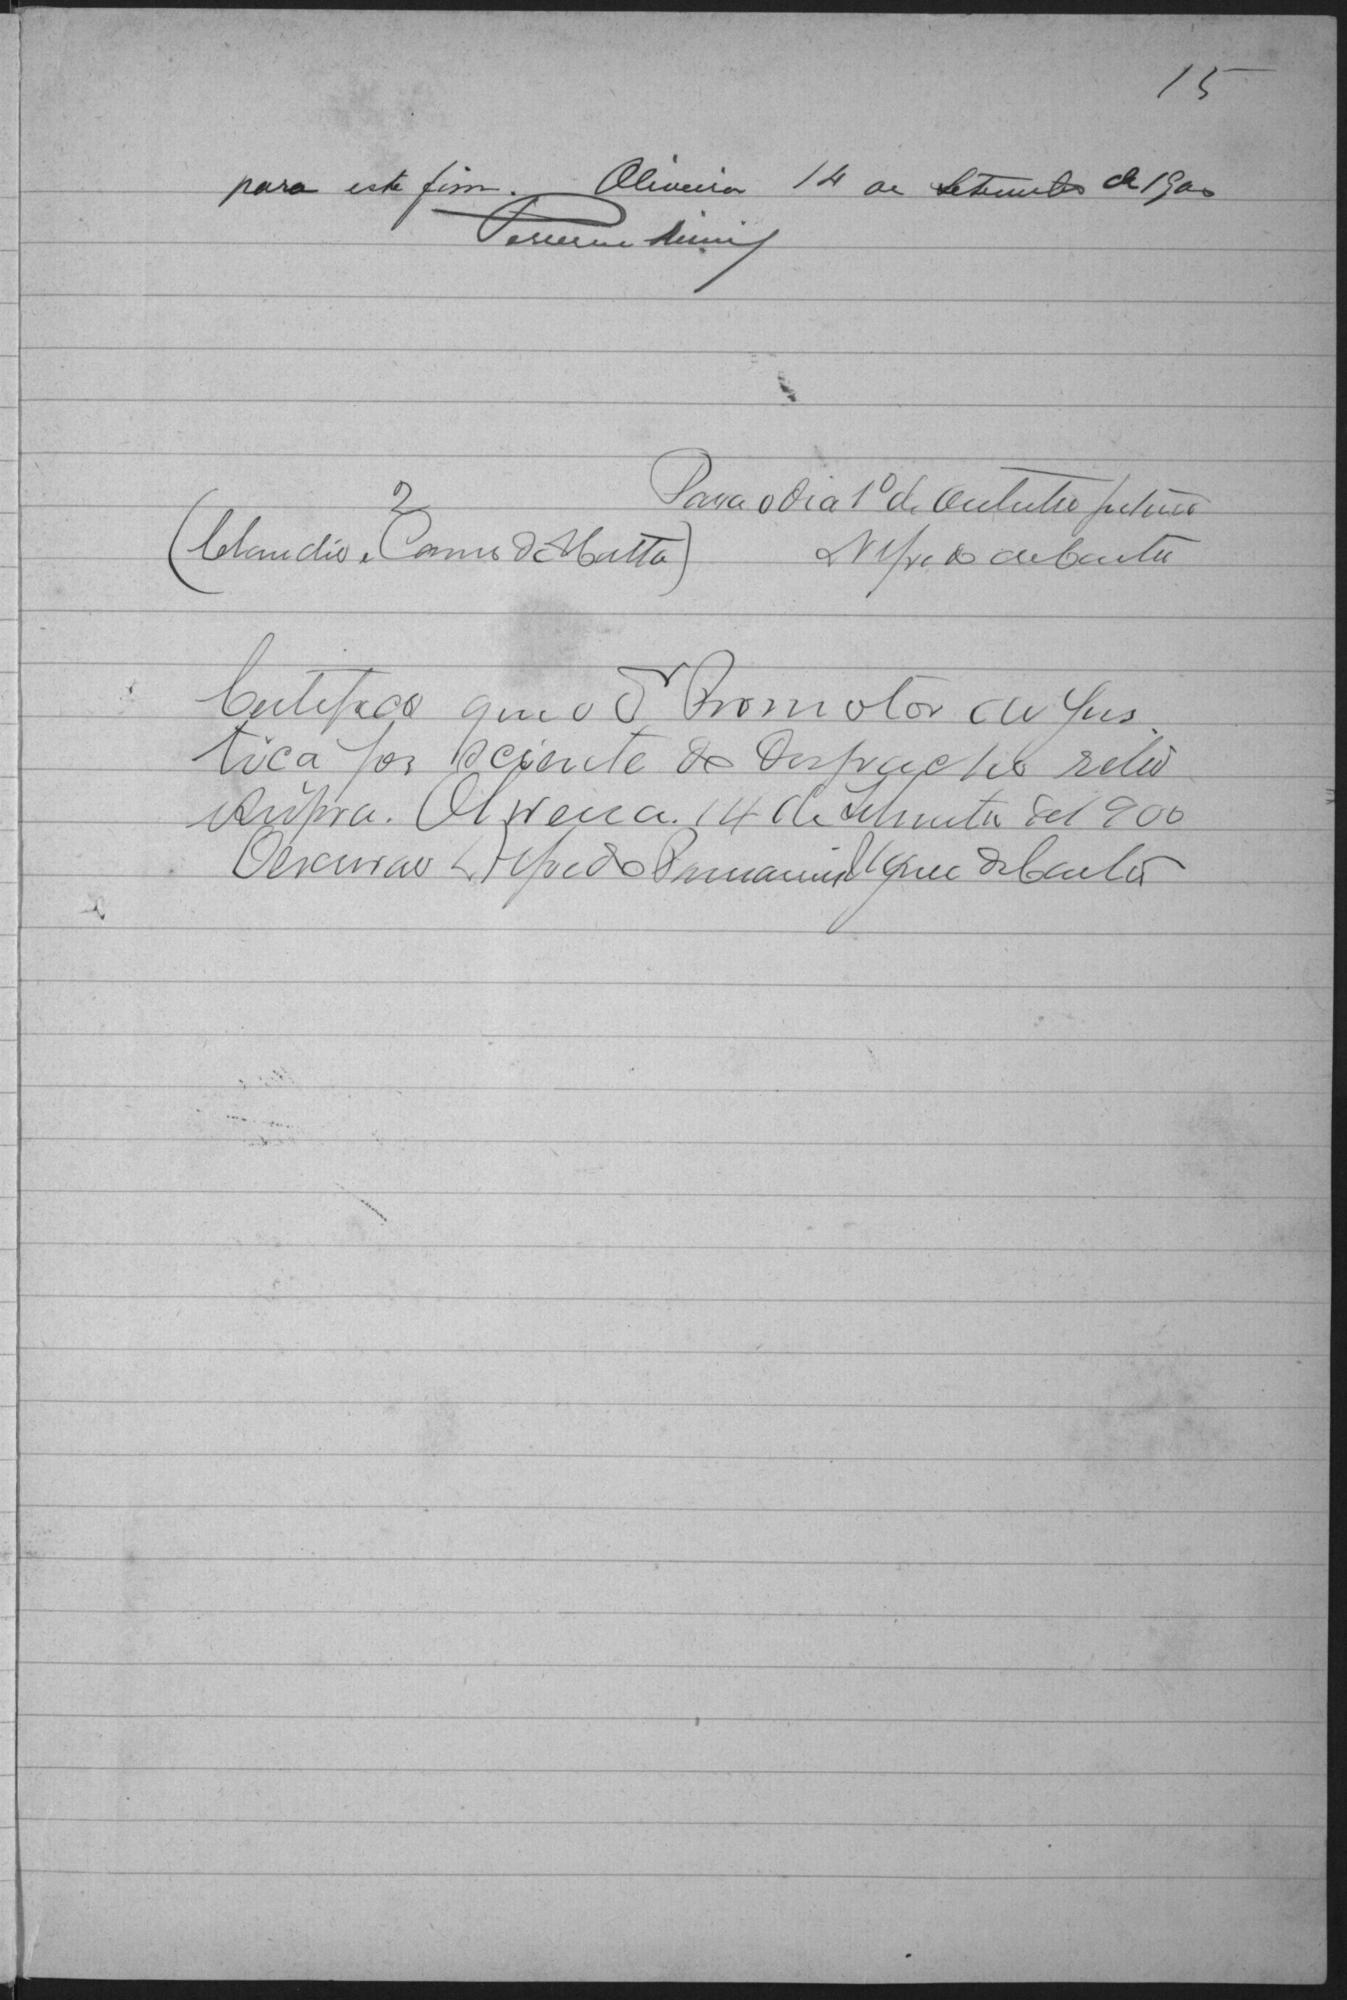 15
para este fim. Oliveira 14 de Setembro de 1900
Para o dia 1º de Outubro futuro
2
(Claudio e Carmo da Matta) Alfredo de Castro
Certifico que o Dr Promotor de Jus
tiça foi sciente do despacho retro
e supra. Oliveira. 14 de Setembro de 1900
O escrivão Alfredo de Castro